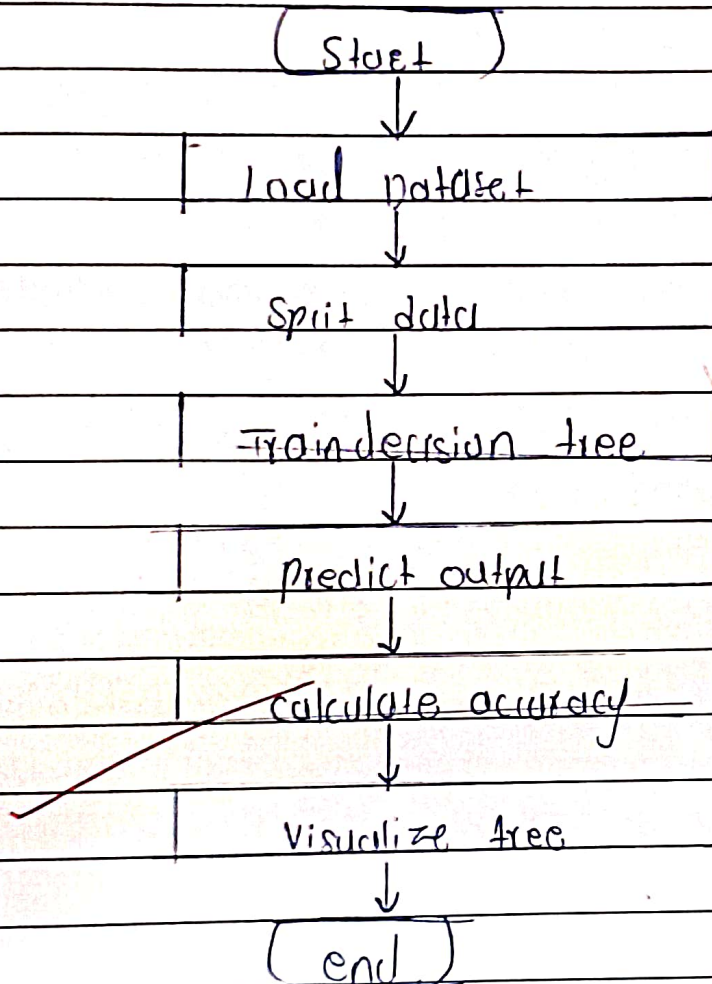 Start
Load Dataset
Split data
Train decision tree
Predict output
calculate accuracy
Visualize tree
end